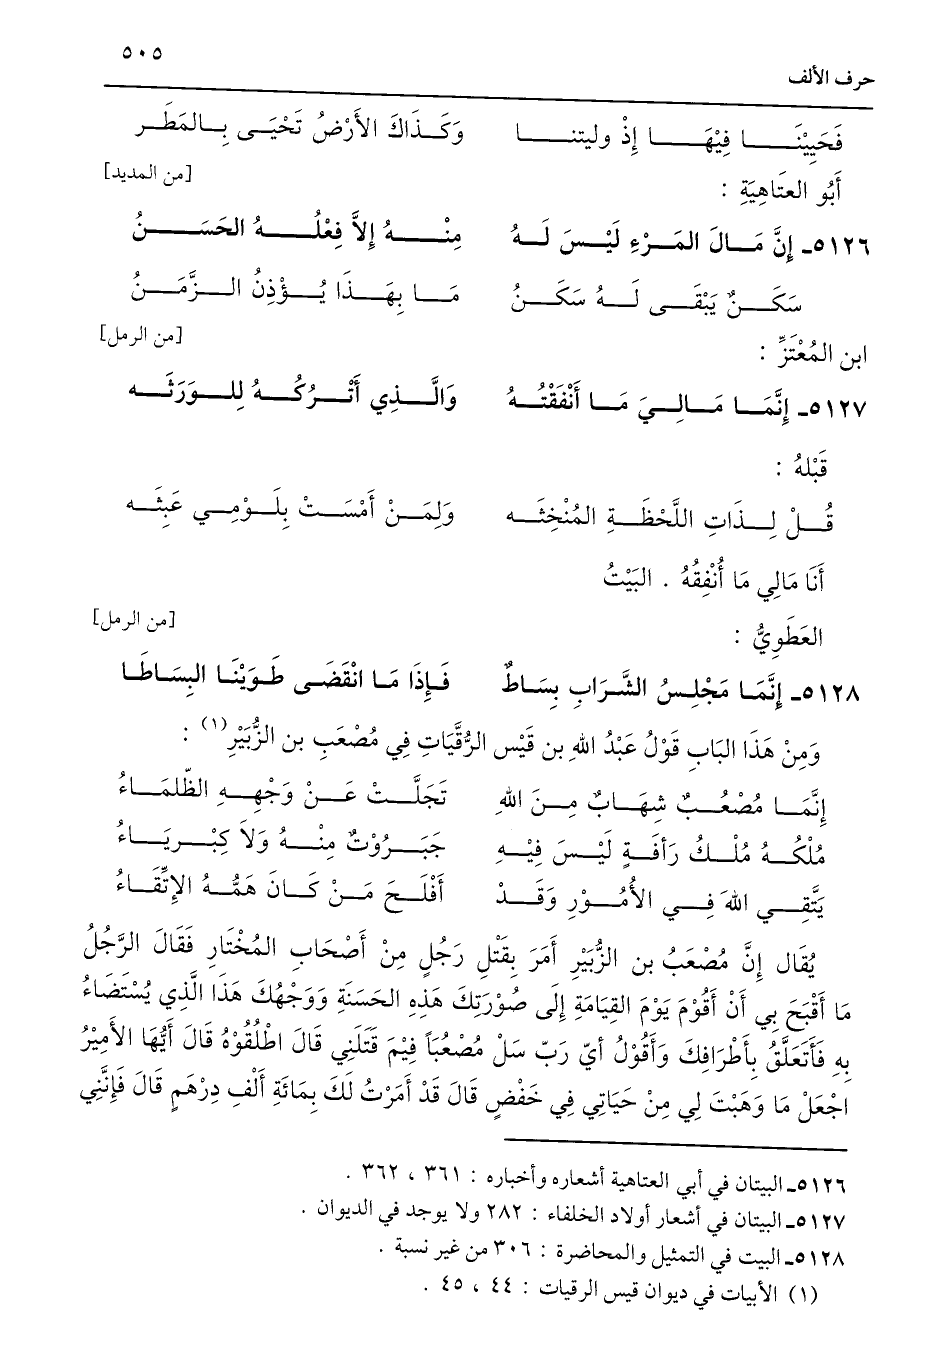 ٥٠٥
حرف الألف
فَحَيِيْنَا فِيْهَا إِذْ وليتنا وَكَذَاكَ الأَرْضُ تَحْيَى بِالمَطَر
أَبُو العتَاهِيَةِ : [من المديد]
٥١٢٦ـ إِنَّ مَالَ المَرْءِ لَيْسَ لَهُ مِنْهُ إِلاَّ فِعْلُهُ الحَسَنُ
سَكَنٌ يَبْقَى لَهُ سَكَنُ مَا بِهَذَا يُؤْذِنُ الزَّمَنُ
ابن المُعْتَزِّ : [من الرمل]
٥١٢٧ـ إِنَّمَا مَالِيَ مَا أَنْفَقْتُهُ وَالَّذِي أَتْرُكُهُ لِلوَرَثَه
قَبْلهُ :
قُلْ لِذَاتِ اللَّحْظَةِ المُنْخِثَه وَلِمَنْ أَمْسَتْ بِلَوْمِي عَبِثَه
أَنَا مَالِي مَا أُنْفِقُهُ . البَيْتُ
العَطَوِيُّ : [من الرمل]
٥١٢٨ـ إِنَّمَا مَجْلِسُ الشَّرَابِ بِسَاطٌ فَإِذَا مَا انْقَضَى طَوَيْنَا البِسَاطَا
وَمِنْ هَذَا البَابِ قَوْلُ عَبْدُ اللهِ بن قَيْس الرُّقَيَاتِ فِي مُصْعَبِ بن الزُّبَيْرِ(١) :
إِنَّمَا مُصْعَبٌ شِهَابٌ مِنَ اللهِ تَجَلَّتْ عَنْ وَجْهِهِ الظّلمَاءُ
مُلْكُهُ مُلْكُ رَأفَةٍ لَيْسَ فِيْهِ جَبَرُوْتٌ مِنْهُ وَلاَ كِبْرِيَاءُ
يَتَّقِي اللهَ فِي الأُمُوْرِ وَقَدْ أَفْلَحَ مَنْ كَانَ هَمُّهُ الإتِّقَاءُ
يُقَال إِنَّ مُصْعَبُ بن الزُّبَيْرِ أَمَرَ بِقَتْلِ رَجُلٍ مِنْ أَصْحَابِ المُخْتَارِ فَقَالَ الرَّجُلُ
مَا أَقْبَحَ بِي أَنْ أَقُوْمَ يَوْمَ القِيَامَةِ إِلَى صُوْرَتِكَ هَذِهِ الحَسَنَةِ وَوَجْهُكَ هَذَا الَّذِي يُسْتَضَاءُ
بِهِ فَأَتَعَلَّقُ بِأَطْرَافِكَ وَأَقُوْلُ أيّ رَبّ سَلْ مُصْعَباً فِيْمَ قَتَلَنِي قَالَ اطْلُقُوْهُ قَالَ أَيُّهَا الأَمِيْرُ
اجْعَلْ مَا وَهَبْتَ لِي مِنْ حَيَاتِي فِي خَفْضٍ قَالَ قَدْ أَمَرْتُ لَكَ بِمَائَةِ أَلْفِ دِرْهَمٍ قَالَ فَإِنَّنِي
٥١٢٦ـ البيتان في أبي العتاهية أشعاره وأخباره : ٣٦١ ، ٣٦٢ .
٥١٢٧ـ البيتان في أشعار أولاد الخلفاء : ٢٨٢ ولا يوجد في الديوان .
٥١٢٨ـ البيت في التمثيل والمحاضرة : ٣٠٦ من غير نسبة .
(١) الأبيات في ديوان قيس الرقيات : ٤٤ ، ٤٥ .